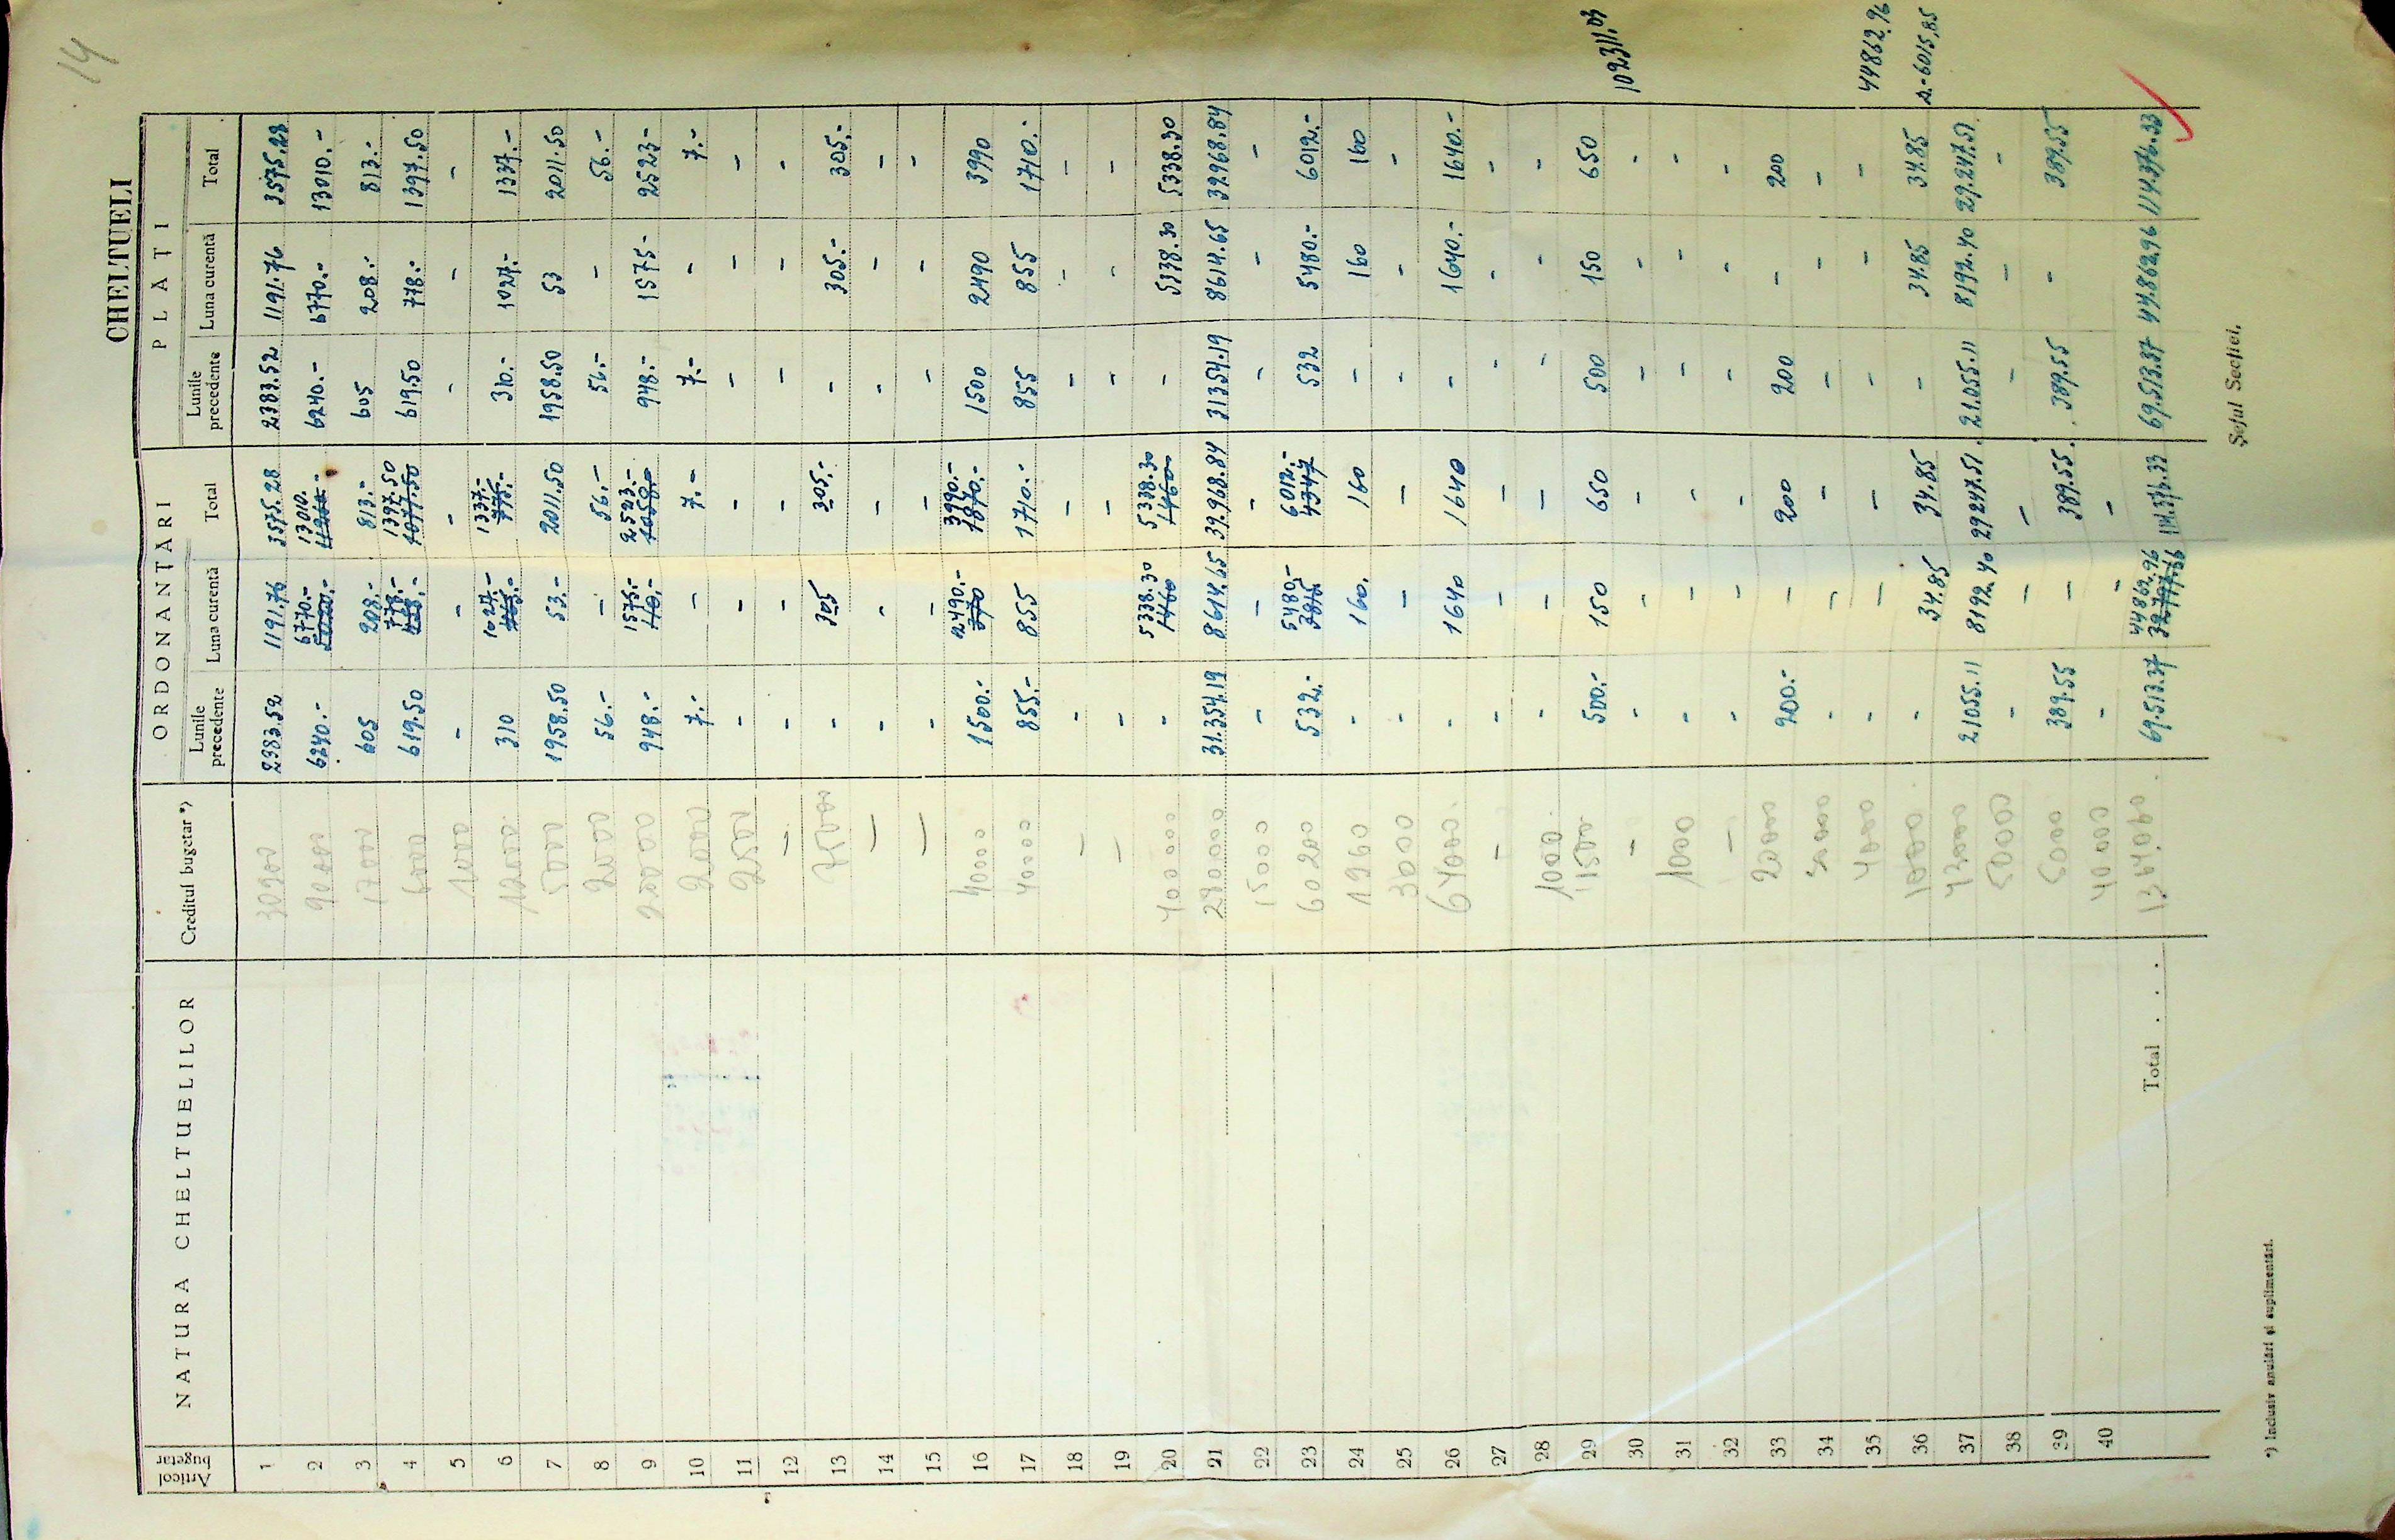 14
CHELTUELI
Articol bugetar NATURA CHELTUELILOR Creditul bugetar *) ORDONANȚARI PLĂȚI
Lunile precedente Luna curentă Total Lunile precedente Luna curentă Total
1 30900 2383.52 1191.76 3575.28 2383.52 1191.76 3575.28
2 90000 6240.- 6770.- 13010. 6240.- 6770.- 13010.-
3 17000 605 208.- 813.- 605 208.- 813.-
4 6000 619.50 778.- 1397.50 619.50 778.- 1397.50
5 1000 - - - - - -
6 12000 310 1027.- 1337.- 310.- 1027.- 1337.-
7 5000 1958.50 53.- 2011.50 1958.50 53 2011.50
8 2000 56.- - 56.- 56.- - 56.-
9 948.- 1575.- 2523.- 948.- 1575- 2523-
10 2000 7.- - 7.- 7.- - 7.-
11 2500 - - - - - -
12 - - - - - - -
13 75000 - 305 305.- - 305.- 305.-
14 - - - - - - -
15 - - - - - - -
16 40000 1500.- 2490.- 3990.- 1500 2490 3990
17 40000 855.- 855 1710.- 855 855 1710.-
18 - - - - - - -
19 - - - - - - -
20 400000 - 5338.30 5338.30 - 5338.30 5338.30
21 290000 31.354.19 8614.65 39.968.84 31354.19 8614.65 39.968.84
22 15000 - - - - - -
23 60200 532.- 5480.- 6012.- 532 5480.- 6012.-
24 1960 - 160. 160 - 160 160
25 3000 - - - - - -
26 64000 - 1640 1640 - 1640.- 1640.-
27 - - - - - - -
28 1000 - - - - - -
29 1500 500.- 150 650 500 150 650
30 - - - - - - -
31 1000 - - - - - -
32 - - - - - - -
33 20000 200.- - 200 200 - 200
34 - - - - - -
35 4000 - - - - - -
36 10000 - 34.85 34.85 - 34.85 34.85
37 43000 21055.11 8192.40 29247.51 21.055.11 8192.40 29.247.51
38 50000 - - - - - -
39 5000 389.55 - 389.55 389.55 - 389.55
40 40000 - - -
Total . . . 69.513.37 44862.96 114.376.33 69.513.37 44.862.96 114.376.33
102311.03
44862.96
6015,85
Șeful Secției,
*) Inclusiv anulări și suplimentări.